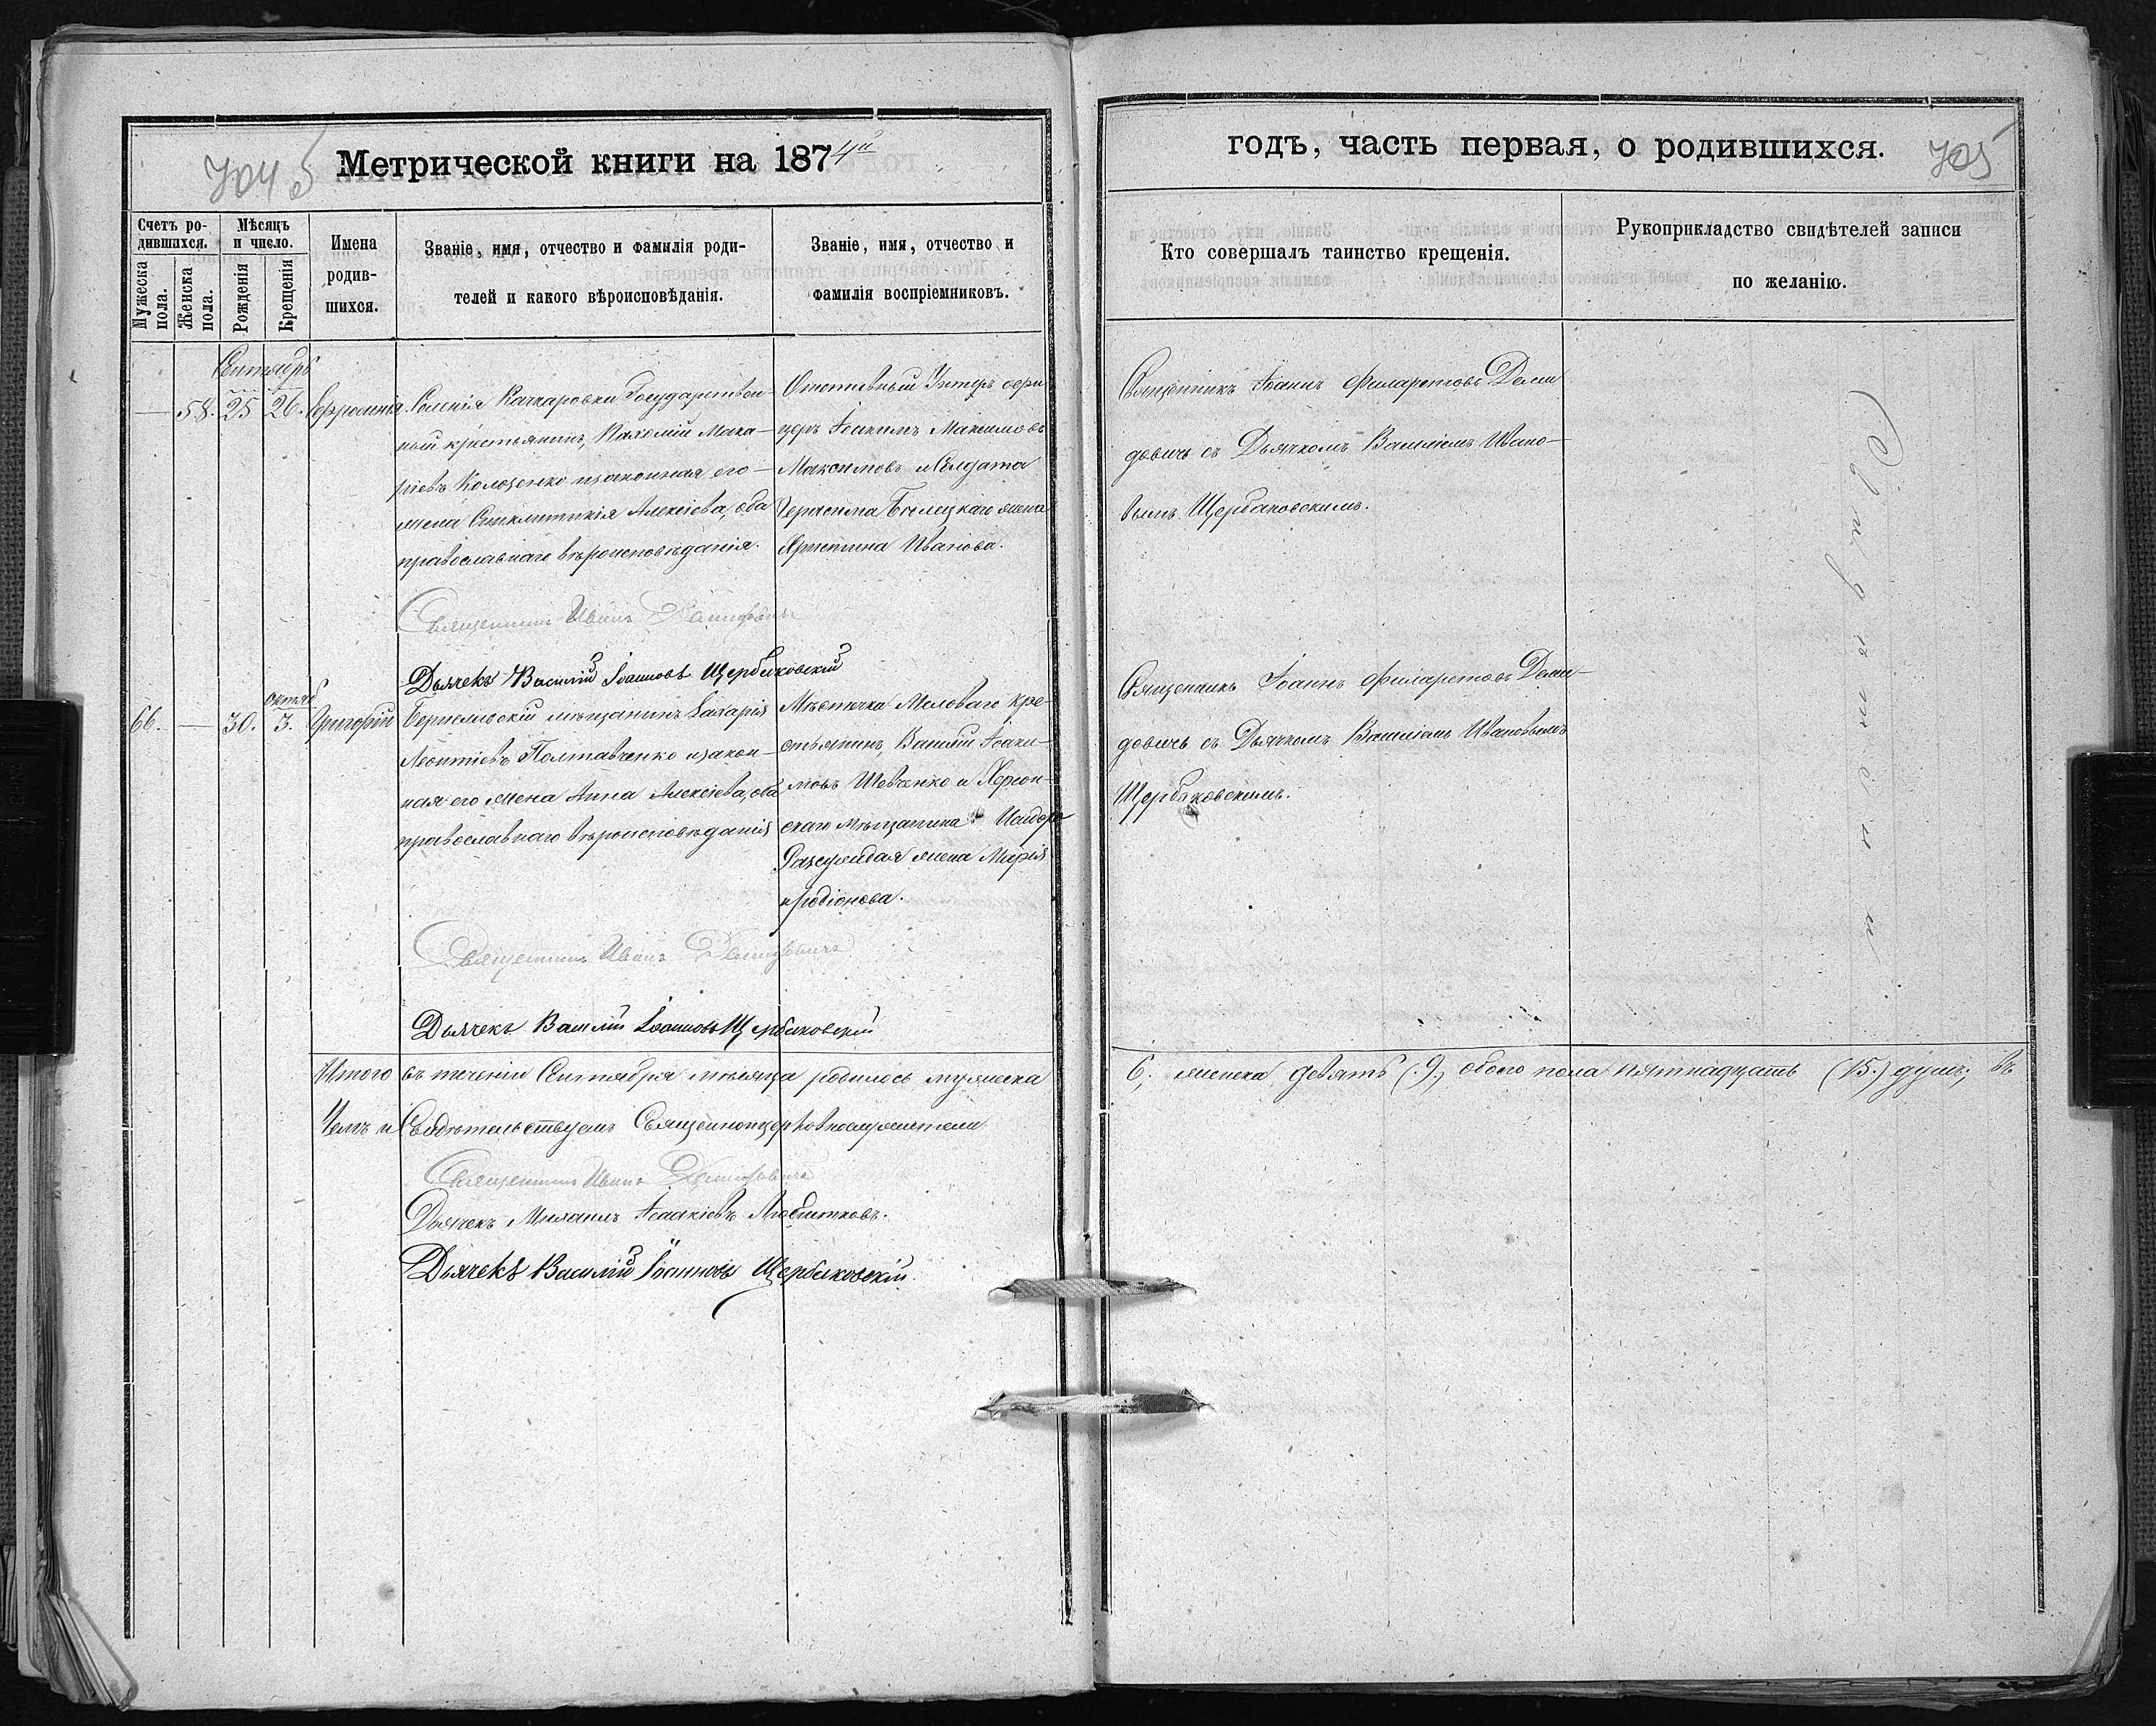 704 б
Метрической книги на 1874й
Счетъ родившихся.
Мѣсяцъ и число.
Мужеска пола.
Женска пола.
Рожденія
Крещенія
Имена родившихся.
Званіе, имя, отчество и фамилія роди-
телей и какого вѣроисповѣданія.
Званіе, имя, отчество и
фамилія воспріемниковъ.
Сентябрь
— 58. 25 26.
Селенія Качкаровки Государствен-
ный крестьянинъ, Пахомій Мака-
ріевъ Колоценко изаконная его
жена Синклитикія Алексіева, оба
православнаго вѣроисповѣданія.
Отставный Унтеръ офи
церъ Іоакимъ Максимовъ
Максимовъ и Солдата
Герасима Бѣлицкаго жена
Христина Иванова.
Священникъ Иванъ Демидовичъ
Дьячекъ Василій Іоанновъ Щербаковскій
66. — 30. октяб 3. Григорій
Бериславскій мѣщанинъ Захарія
Леонтіевъ Полтавченко изакон-
ная его жена Анна Алексіева, оба
православнаго вѣроисповѣданія
Мѣстечка Меловаго кре-
стьянинъ, Василій Іоаки-
мовъ Шевченко и Херсон-
скаго мѣщанина Исидора
жена Марія
иродіонова.
Священникъ Иванъ Демидовичъ
Дьячекъ Василій Іоанновъ Щербаковскій
Итого въ теченіи Сентября мѣсяца родилось мужеска
Чемъ и Свидѣтельствуемъ Священноцерковнослужители
Священникъ Иванъ Демидовичъ
Дьячекъ Михаилъ Ісаакіевъ
Дьячекъ Василій Іоанновъ Щербаковскій.
годъ, часть первая, о родившихся.
705
Кто совершалъ таинство крещенія.
Рукоприкладство свидѣтелей записи
по желанію.
Священникъ Іоаннъ Филаретовъ Деми
довичъ съ Дьячкомъ Василіемъ Ивано-
вымъ Щербаковскимъ.
Священникъ Іоаннъ Филаретовъ Деми-
довичъ съ Дьячкомъ Василіемъ Ивановымъ
Щербаковскимъ.
6, женска девять (9.) обоего пола пятнадцать (15.) душъ; въ